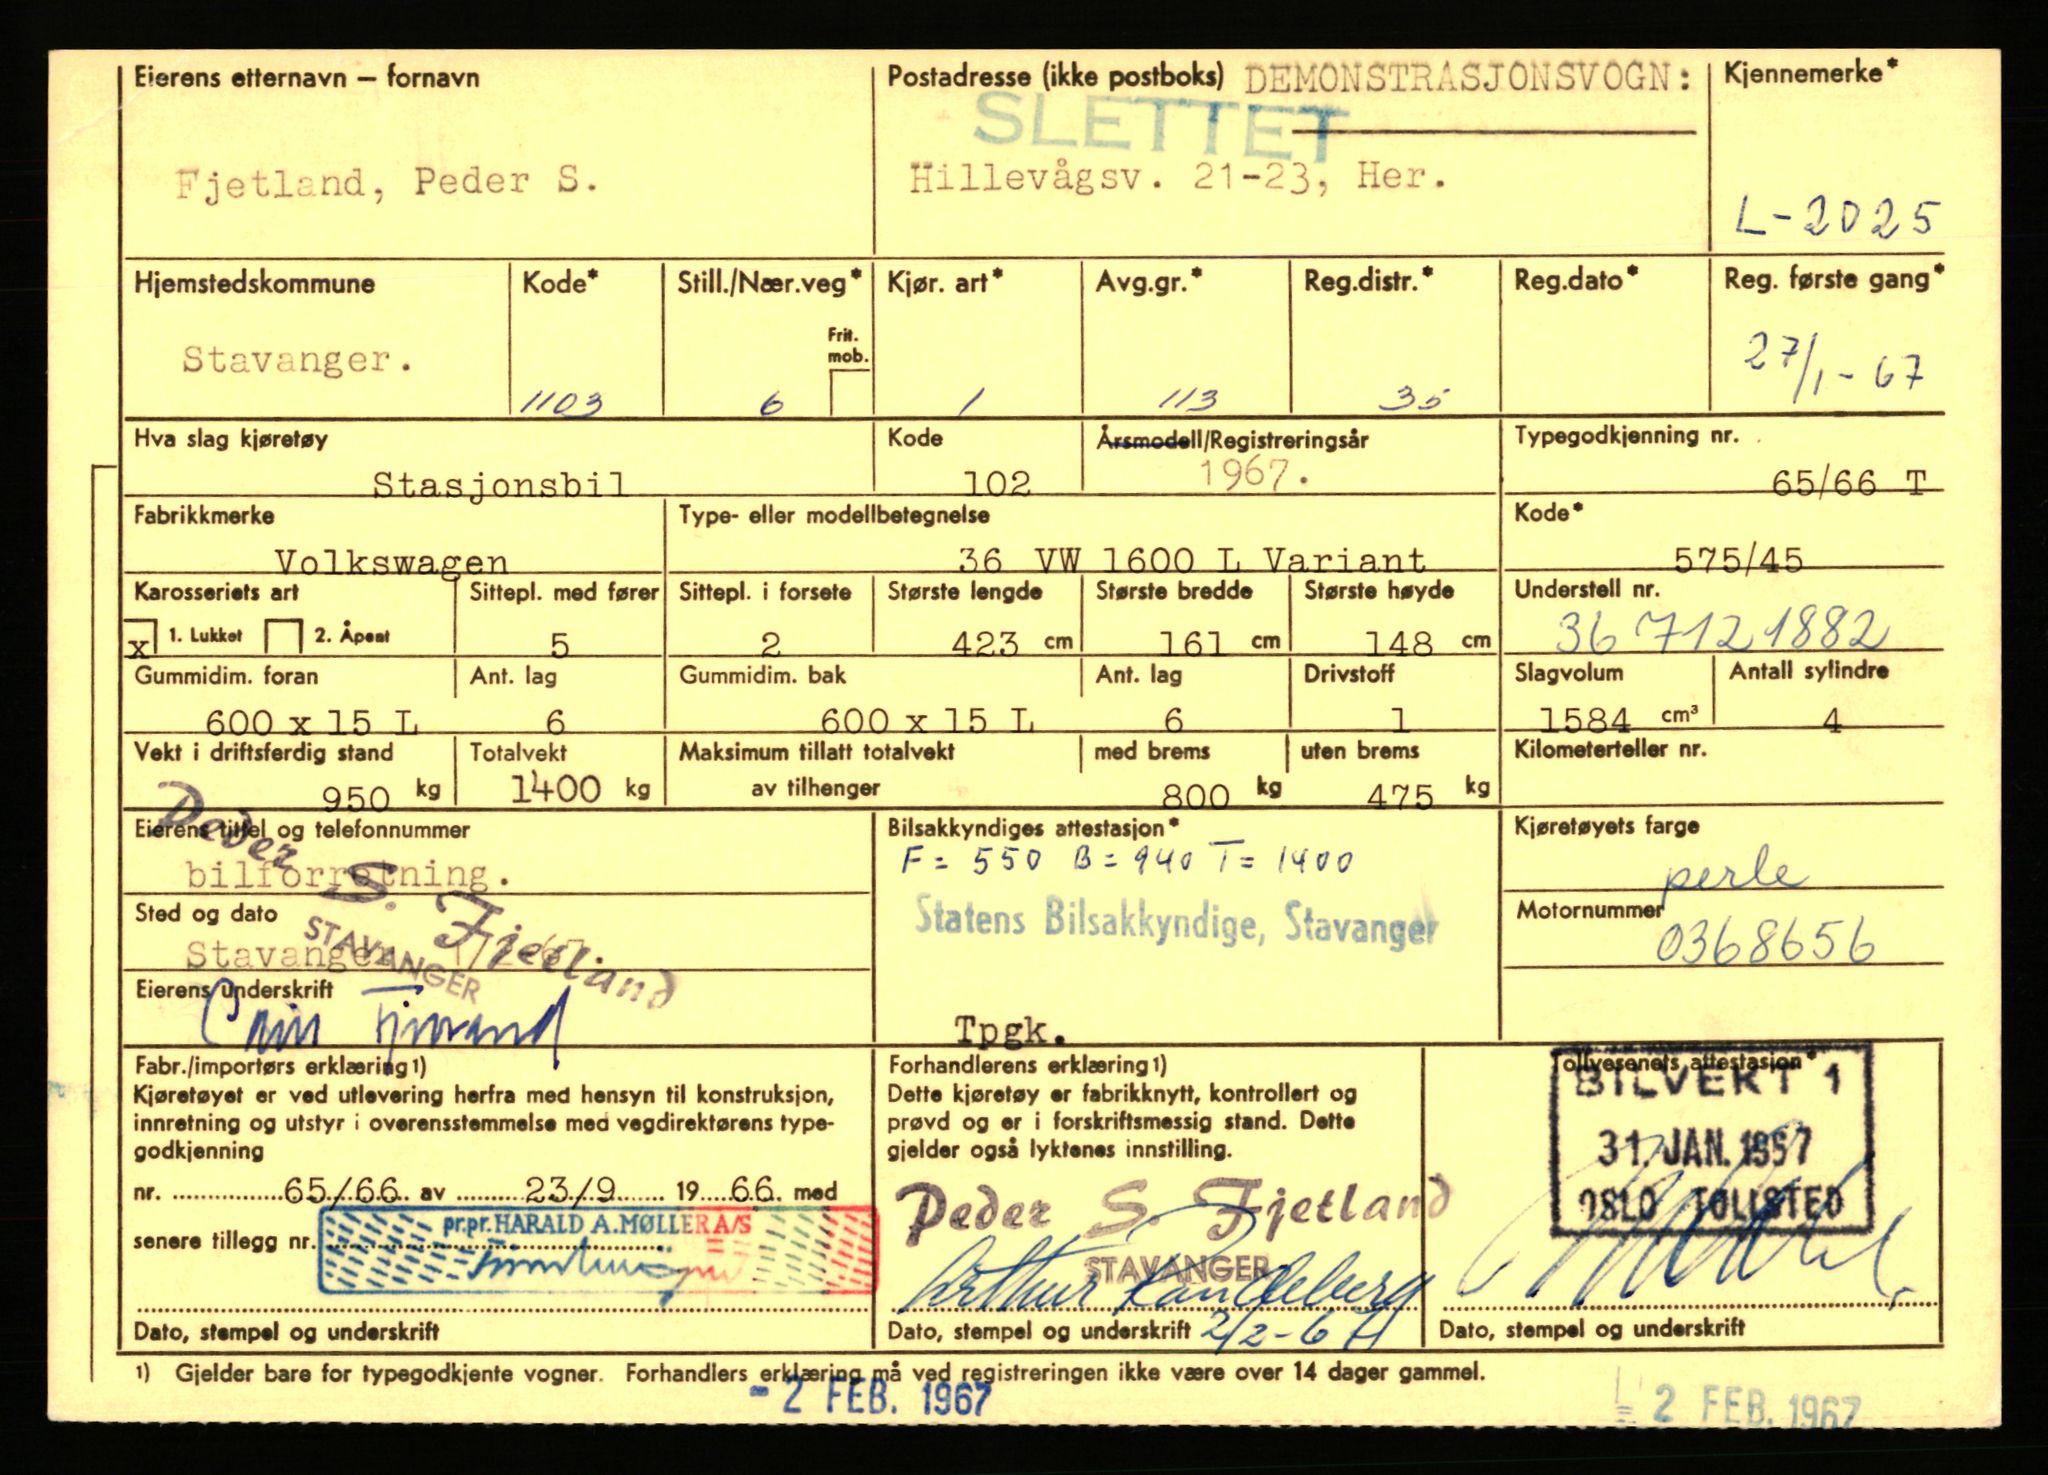 Eierens etternavn – fornavn
Fjetland, Peder S.
Postadresse (ikke postboks) DEMONSTRASJONSVOGN:
SLETTET
Hillevågsv. 21-23, Her.
Kjennemerke*
L-2025
Hjemstedskommune
Stavanger.
Kode*
1103
Still./Nær.veg*
Frit.
mob.
6
Kjør. art*
1
Avg.gr.*
113
Reg.distr.*
35
Reg.dato*
Reg. første gang*
27/1-67
Hva slag kjøretøy
Stasjonsbil
Kode
102
Årsmodell/Registreringsår
1967.
Typegodkjenning nr.
65/66 T
Fabrikkmerke
Volkswagen
Type- eller modellbetegnelse
36 VW 1600 L Variant
Kode*
575/45
Karosseriets art
x 1. Lukket 2. Åpent
Sittepl. med fører
5
Sittepl. i forsete
2
Største lengde
423 cm
Største bredde
161 cm
Største høyde
148 cm
Understell nr.
367121882
Gummidim. foran
600 x 15 L
Ant. lag
6
Gummidim. bak
600 x 15 L
Ant. lag
6
Drivstoff
1
Slagvolum
1584 cm³
Antall sylindre
4
Vekt i driftsferdig stand
950 kg
Totalvekt
1400 kg
Maksimum tillatt totalvekt
av tilhenger
med brems
800 kg
uten brems
475 kg
Kilometerteller nr.
Eierens tittel og telefonnummer
bilforretning.
Peder S. Fjetland
STAVANGER
Sted og dato
Stavanger
Eierens underskrift
Bilsakkyndiges attestasjon*
F = 550 B = 940 T = 1400
Statens Bilsakkyndige, Stavanger
Tpgk.
Kjøretøyets farge
perle
Motornummer
0368656
Fabr./importørs erklæring 1)
Kjøretøyet er ved utlevering herfra med hensyn til konstruksjon,
innretning og utstyr i overensstemmelse med vegdirektørens type-
godkjenning
nr. 65/66 av 23/9 1966 med
senere tillegg nr.
pr.pr. HARALD A. MØLLER A/S
Dato, stempel og underskrift
Forhandlerens erklæring 1)
Dette kjøretøy er fabrikknytt, kontrollert og
prøvd og er i forskriftsmessig stand. Dette
gjelder også lyktenes innstilling.
Peder S. Fjetland
STAVANGER
Arthur Randeberg
Dato, stempel og underskrift 2/2-67
Tollvesenets attestasjon*
BILVEKT 1
31. JAN. 1967
OSLO TOLLSTED
Dato, stempel og underskrift
1) Gjelder bare for typegodkjente vogner. Forhandlers erklæring må ved registreringen ikke være over 14 dager gammel.
- 2 FEB. 1967
L 2 FEB. 1967